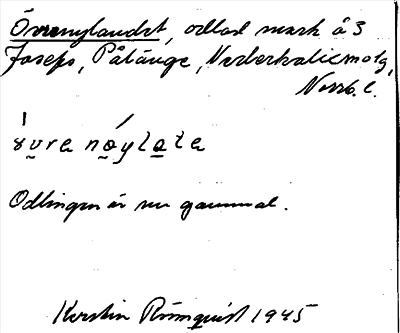 Övrenylandet, odlad mark å 3
Josefs, Pålänge, Nederkalix mg,
Norrb. l.
övre nøylate
Odlingen är nu gammal.
Kerstin Rönnquist 1945